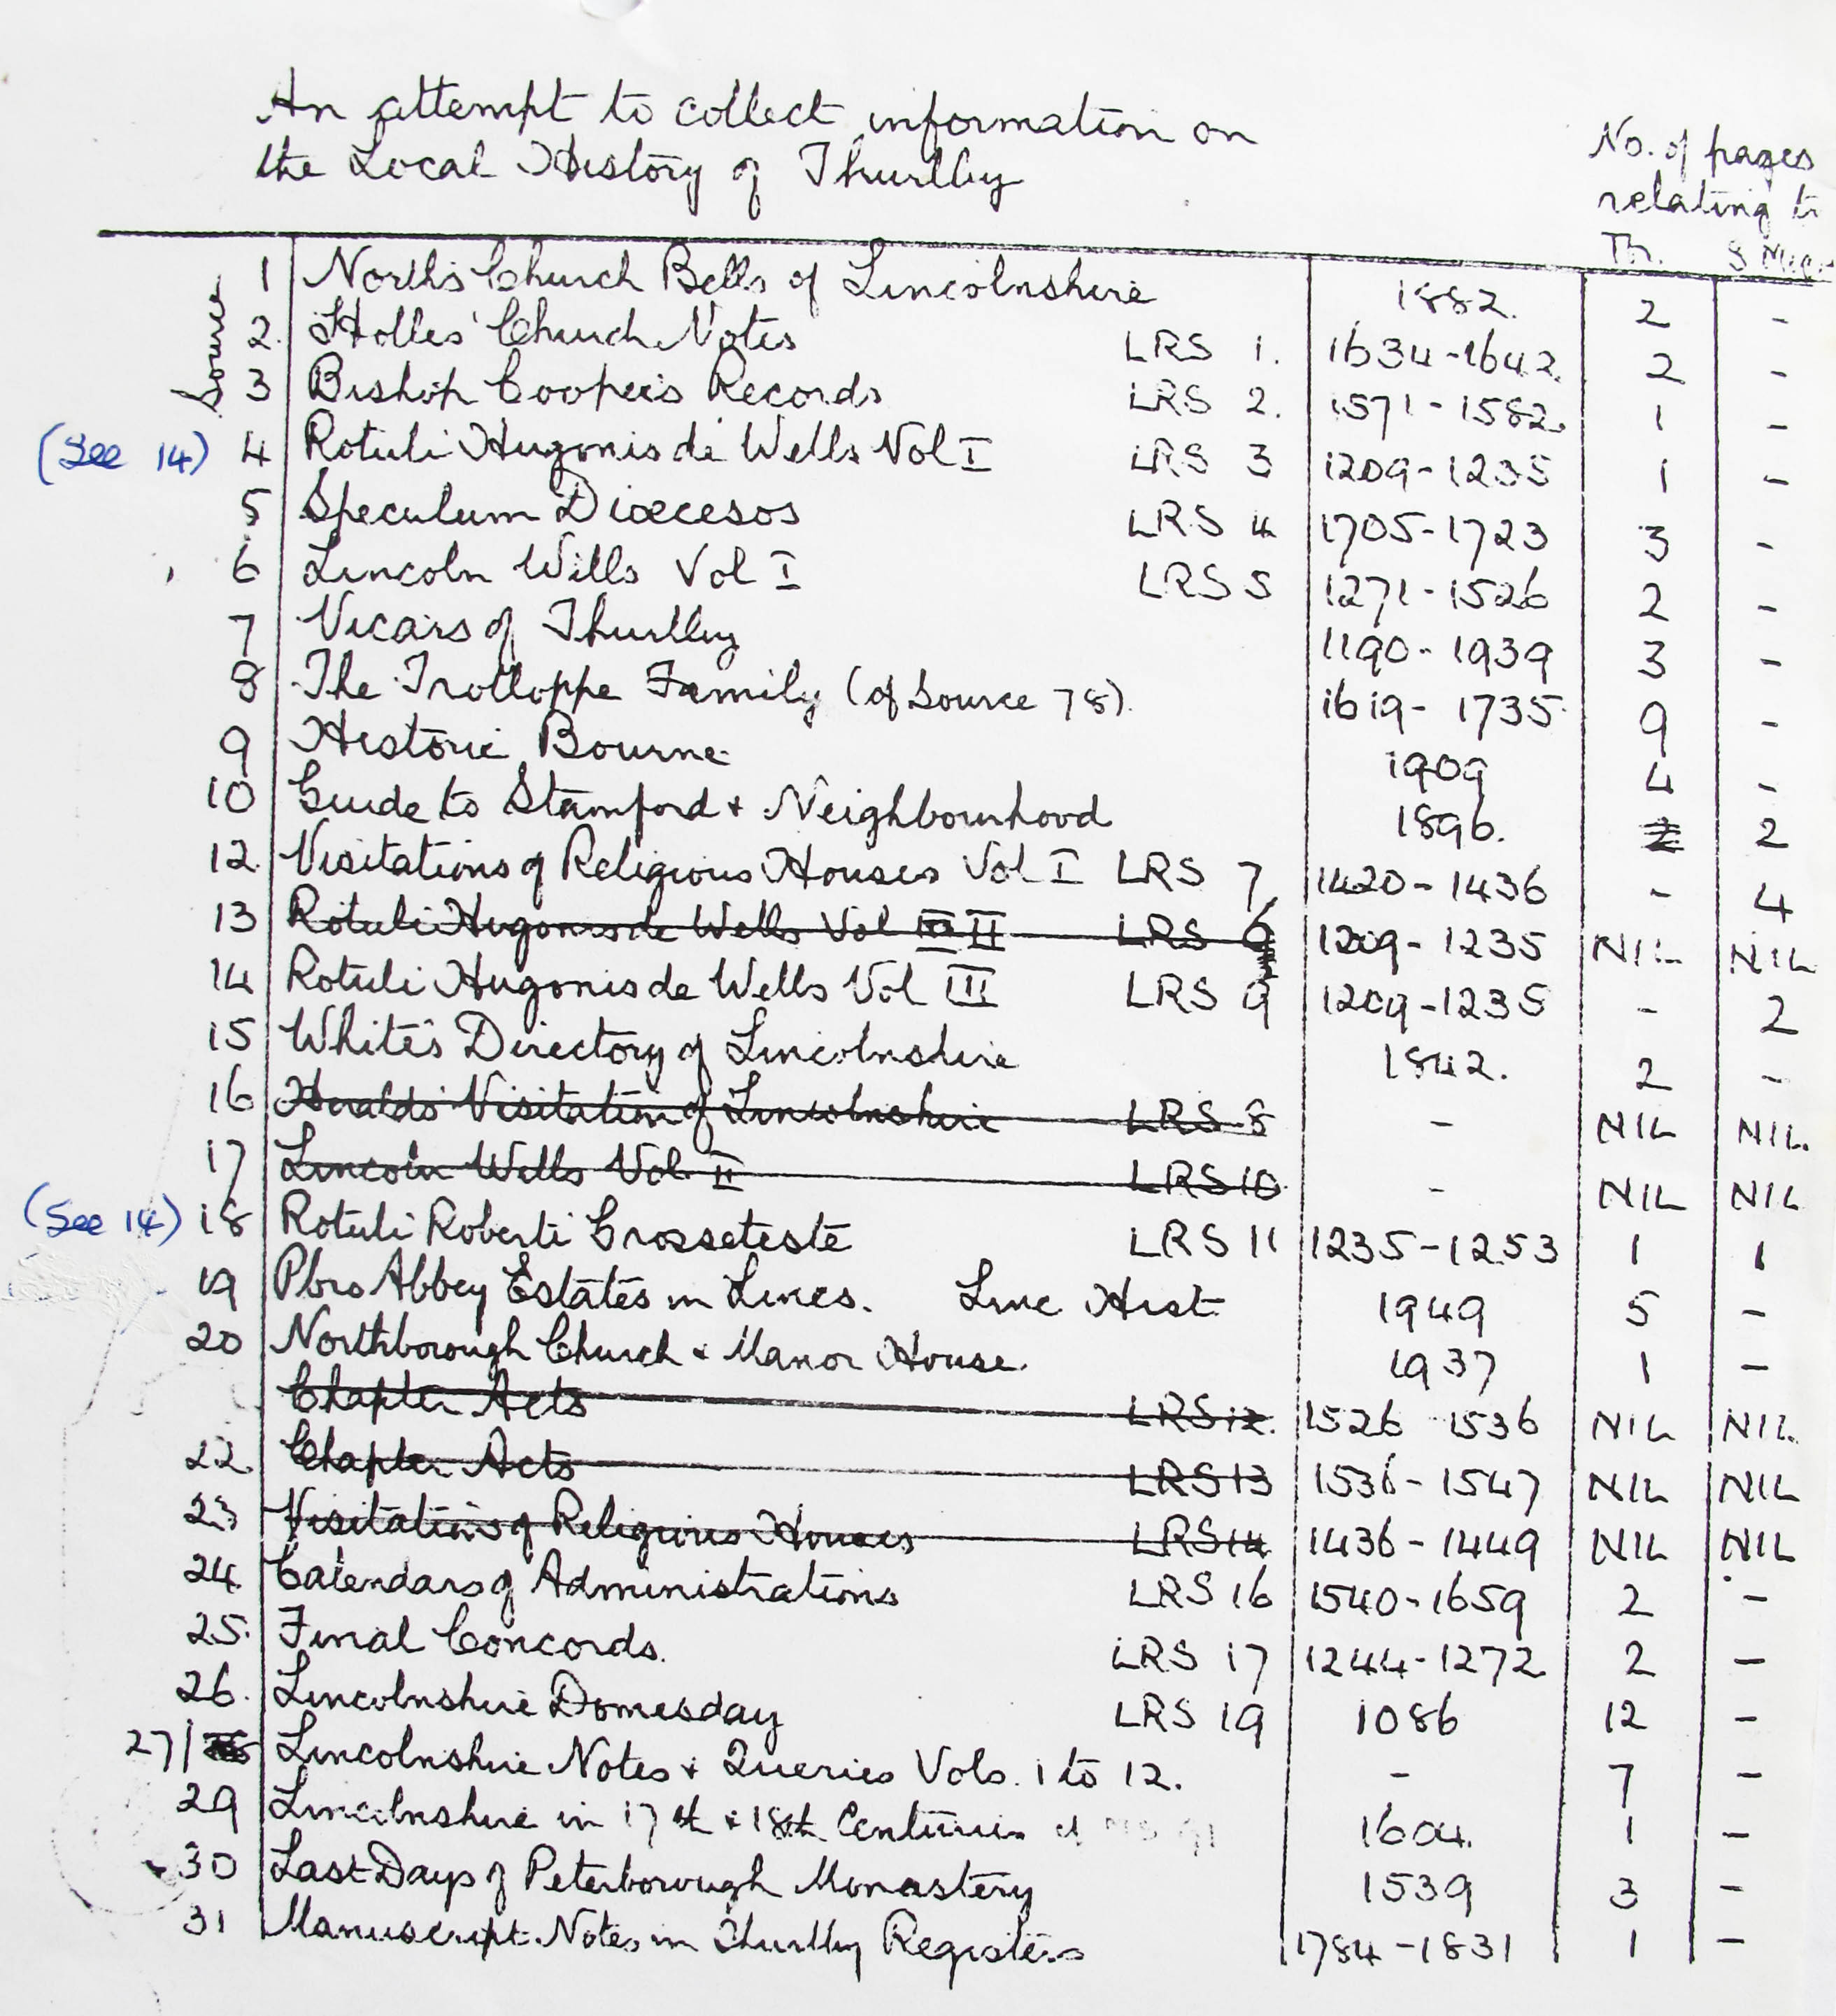 An attempt to collect information on
the Local History of Thurlby
No. of pages
relating to
Th. S
Source
1 North's Church Bells of Lincolnshire 1882. 2 -
2. Holles' Church Notes LRS 1. 1634-1642. 2 -
3 Bishop Cooper's Records LRS 2. 1571-1582. 1 -
(See 14) 4 Rotuli Hugonis de Wells Vol I LRS 3 1209-1235 1 -
5 Speculum Diœcesos LRS 4 1705-1723 3 -
6 Lincoln Wills Vol I LRS 5 1271-1526 2 -
7 Vicars of Thurlby 1190-1939 3 -
8 The Trolloppe Family (of Source 78). 1619-1735 9 -
9 Historic Bourne 1909 4 -
10 Guide to Stamford & Neighbourhood 1896. 2 2
12. Visitations of Religious Houses Vol I LRS 7 1420-1436 - 4
13 Rotuli Hugonis de Wells Vol II LRS 6 1209-1235 NIL NIL
14 Rotuli Hugonis de Wells Vol III LRS 9 1209-1235 - 2
15 White's Directory of Lincolnshire 1842. 2 -
16 Heralds' Visitation of Lincolnshire LRS 8 - NIL NIL.
17 Lincoln Wills Vol II LRS 10 - NIL NIL
(See 14) 18 Rotuli Roberti Grosseteste LRS 11 1235-1253 1 1
19 Pboro Abbey Estates in Lincs. Linc Hist 1949 5 -
20 Northborough Church & Manor House. 1937 1 -
Chapter Acts LRS 12. 1526 1536 NIL NIL
22. Chapter Acts LRS 13 1536-1547 NIL NIL
23 Visitations of Religious Houses LRS 14 1436-1449 NIL NIL
24. Calendars of Administrations LRS 16 1540-1659 2 -
25. Final Concords. LRS 17 1244-1272 2 -
26. Lincolnshire Domesday LRS 19 1086 12 -
27/ Lincolnshire Notes & Queries Vols. 1 to 12. - 7 -
29 Lincolnshire in 17th & 18th Centuries 1604. 1 -
30 Last Days of Peterborough Monastery 1539 3 -
31 Manuscript Notes in Thurlby Registers 1784-1831 1 -